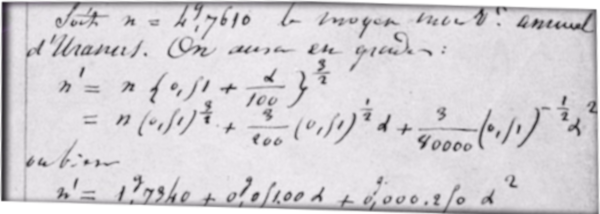 Soit n = 4ᵍ,7610 le moyen mouvᵗ. annuel
d'Uranus. On aura en grades :
n' = n {0,51 + α/100}^3/2
= n (0,51)^3/2 + 3/200 (0,51)^1/2 α + 3/80000 (0,51)^-1/2 α²
ou bien
n' = 1ᵍ,7340 + 0ᵍ,05100 α + 0ᵍ,000.250 α²